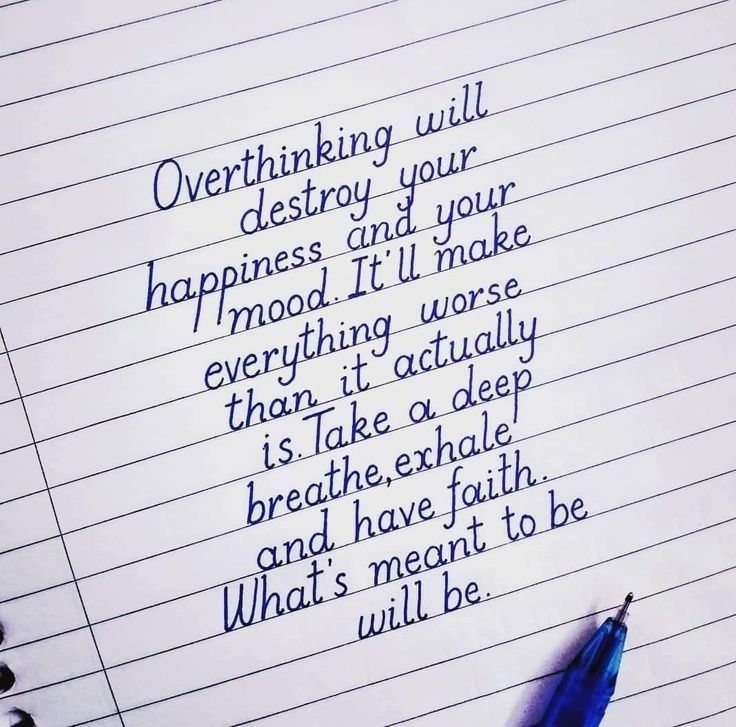 Overthinking will
destroy your
happiness and your
mood. It'll make
everything worse
than it actually
is. Take a deep
breathe, exhale
and have faith.
What's meant to be
will be.